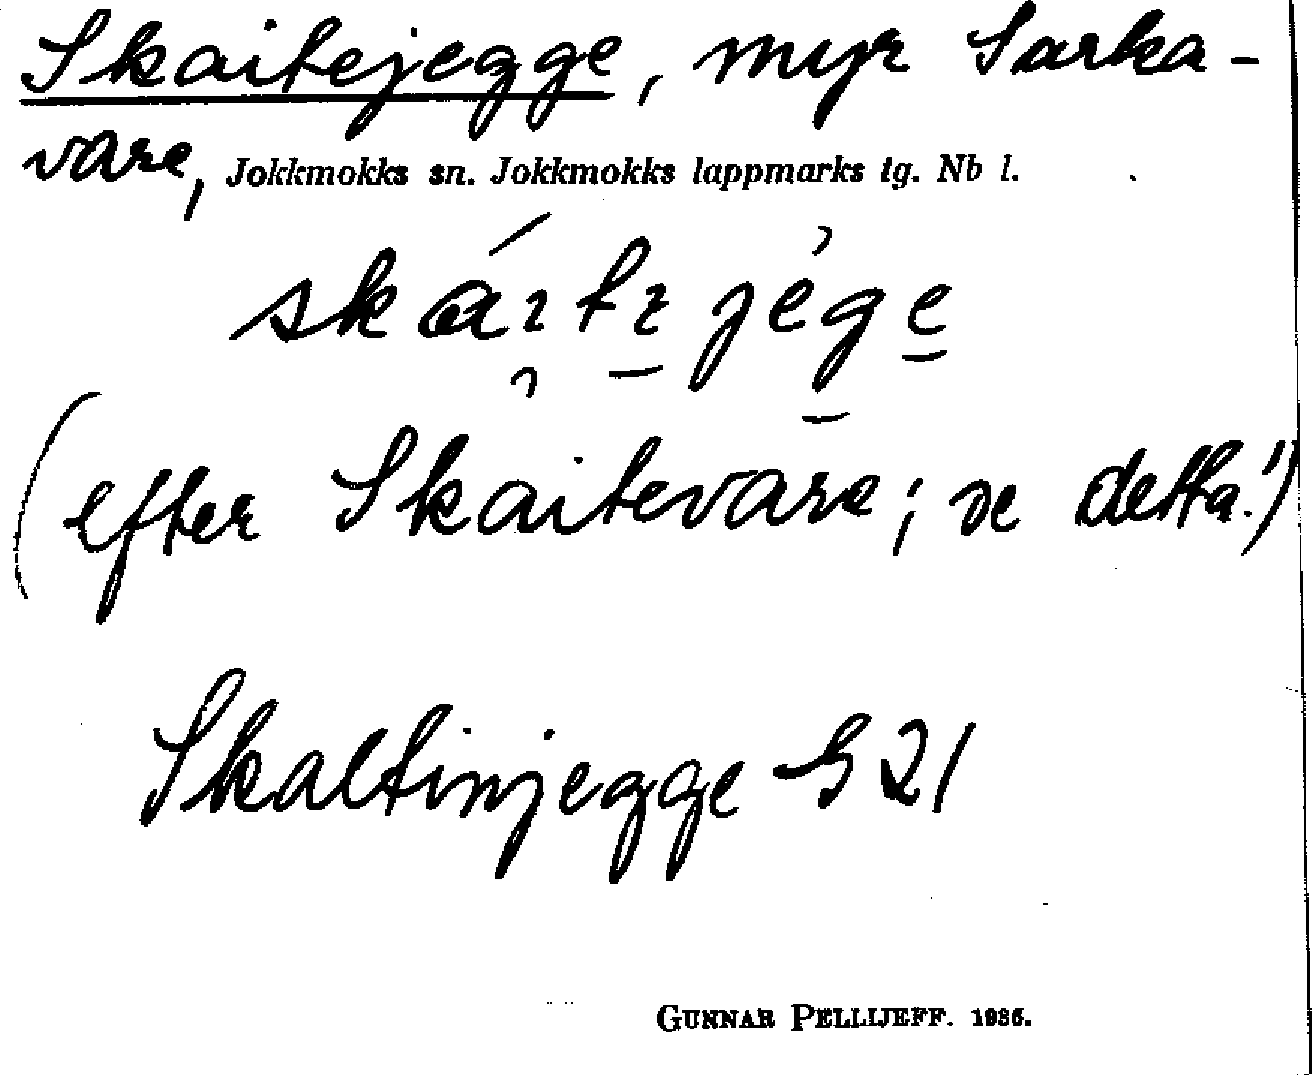 Skaitejegge, myr Sarka-
vare, Jokkmokks sn. Jokkmokks lappmarks tg. Nb l.
(efter Skaitevare; se detta!)
Skaltinjegge G 21
GUNNAR PELLIJEFF. 1936.